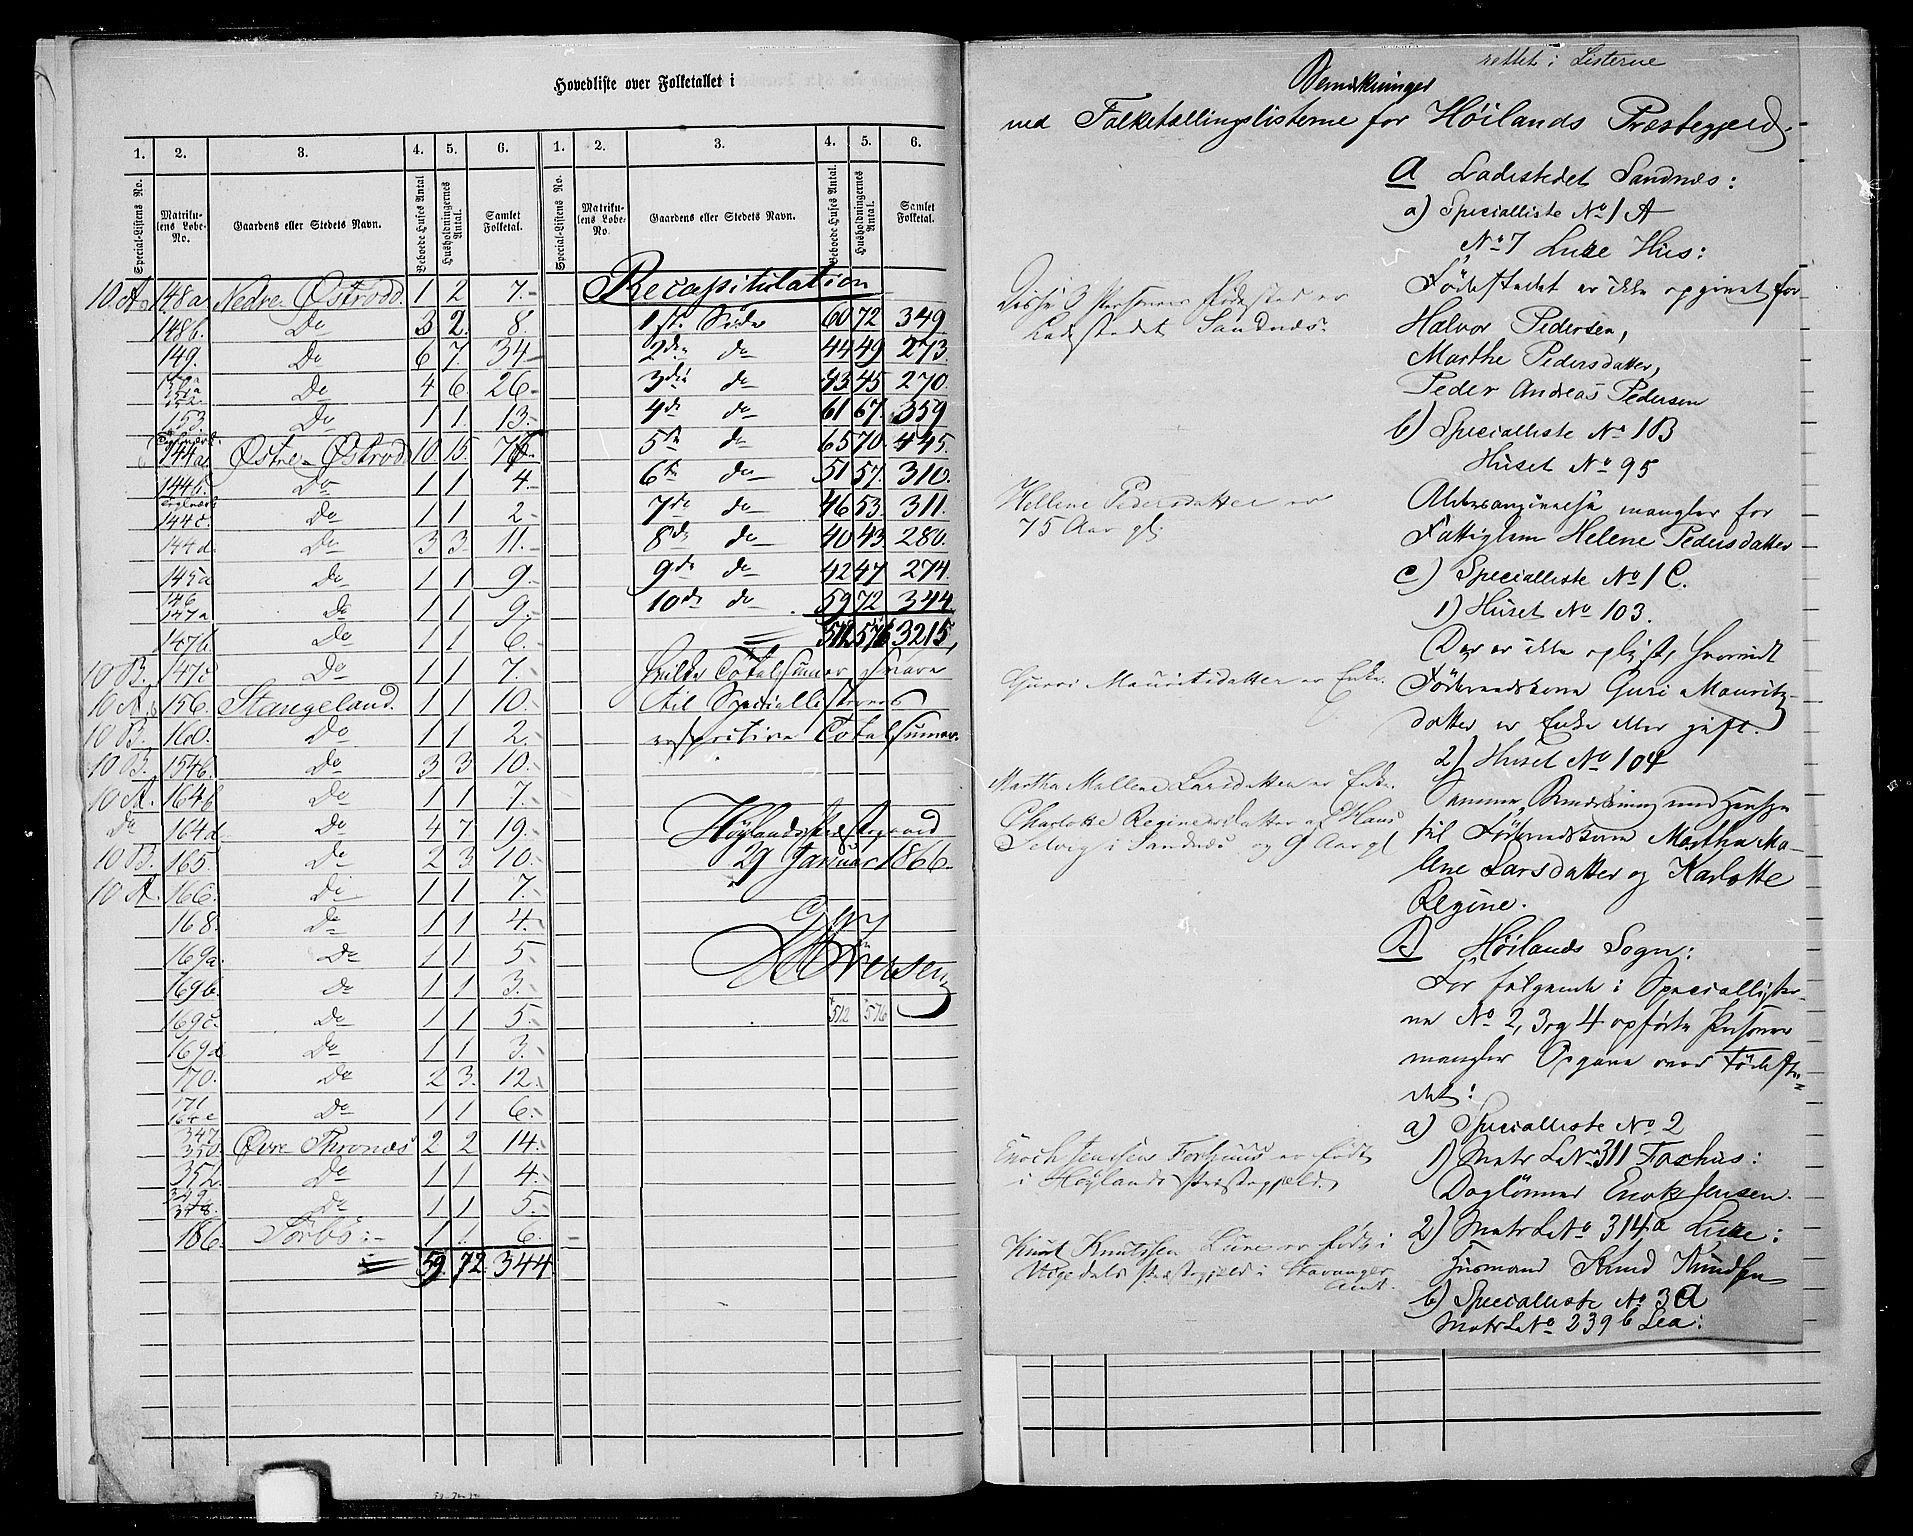 Hovedliste over Folketallet i
1. 2. 3. 4. 5. 6. 1. 2. 3. 4. 5. 6.
Special-Listens No. Matrikulens Løbe-No. Gaardens eller Stedets Navn. Beboede Huses Antal Husholdningernes Antal. Samlet Folketal. Special-Listens No. Matrikulens Løbe-No. Gaardens eller Stedets Navn. Beboede Huses Antal. Husholdningernes Antal. Samlet Folketal.
10.A. 148a Nedre Østrod 1 2 7.
148b. Do 3 2. 8.
149. Do 6 7. 34
Do 4 6. 26
153. Do 1 1. 13.
144a Østre Østrod 10 15.
144b. Do 1 1 4.
144c. Do 1 1 2.
144d. Do 3 3. 11.
145a Do 1 1 9.
146 147a Do 1 1 9.
147b. Do 1 1 6.
10 B. 147c Do 1 1 7.
10 A. 156. Stangeland. 1 1 10.
10 B. 160. Do 1 1 2.
10 B. 154b. Do 3 3 10.
10 A. 164b Do 1 1 7.
Do 164d. Do 4 7 19.
10 B. 165. Do 2 3. 10.
10 A. 166. Do 1 1 7.
168. Do 1 1 4.
169a. Do 1 1 5
169b. Do 1 1 3.
169c. Do 1 1 5.
169d Do 1 1 3.
170. Do 2 3. 12.
171 164e Do 1 1 6.
347. 350. Øvre Thronæs 2 2 14.
352. Do 1 1 4.
349. 348. Do 1 1 5.
186. Sørbø 1 1. 6.
59. 72. 344.
Recapitulation
1ste Side 60 72 349
2den do 44 49 273.
3die do 43 45 270.
4de do 61 67. 359
5te do 65 70. 445.
6te do 51 57. 310.
7de do 46 53. 311.
8de do 40 43 280.
9de do 42 47 274.
10de do 59 72 344
512 576 3215,
hvilke Totalsummer svare
til Speciallisternes
respective Totalsummer.
Høylands Præstegaard
29 Januar 1866.
Iversen
512 576
rettet i Listerne
Bemærkninger
ved Folketællingslisterne for Høilands Præstegjeld.
A Ladestedet Sandnæs:
a) Specialliste No 1 A
No 7 Lure Hus:
Fødestedet er ikke opgivet for
Halvor Pedersen,
Marthe Pedersdatter,
Peder Andreas Pedersen
Disse 3 Personers Fødested er
Ladestedet Sandnæs.
b) Specialliste No 1B
Huset No 95
Aldersangivelse mangler for
Fattiglem Helene Pedersdatter
Hellene Pedersdatter er
75 Aar gl.
c) Specialliste No 1 C.
1) Huset No 103.
Der er ikke oplyst, hvorvidt
Føderaadskone Guri Mauritz-
datter er Enke eller gift.
Gurri Mauritsdatter er Enke.
2) Huset No 104
Samme Bemærkning med Hensyn
til Føderaadskone Martha Ma-
lene Larsdatter og Karlotte
Regine.
Martha Mallene Larsdatter er Enke.
Charlotte Reginersdatter af Hans
Selvig i Sandnæs og 9 Aar gl
B Høilands Sogn:
For følgende i Speciallister-
ne No 2, 3 og 4 opførte Personer
mangler Opgave over Fødeste-
det:
a) Specialliste No 2
1) Matr LNo 311 Foxhus:
Daglønner Enok Jensen.
Enoch Jenssen Foxhuus er født
i Høylands Præstegjeld.
2) Matr LNo 314a Lure:
Husmand Knud Knudsen
Knut Knutssen Lure er født i
Vigedals Præstegjeld i Stavanger
Amt.
b) Specialliste No 3 A
Matr LNo 239b Lea: